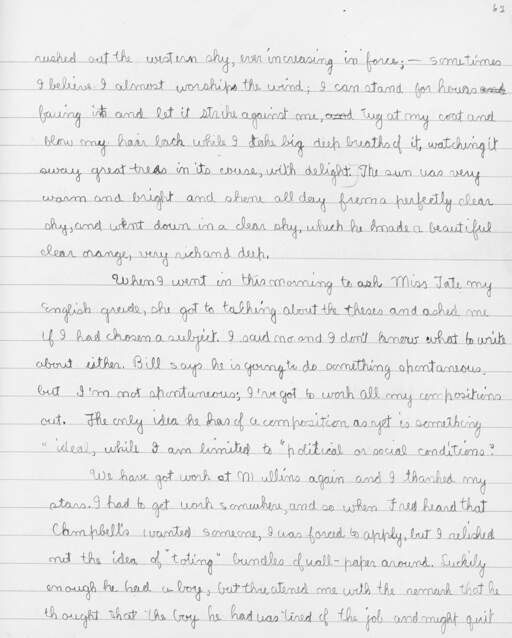 62
rushed out the western sky, ever increasing in force; — sometimes
I believe I almost worship the wind; I can stand for hours
facing it and let it strike against me, tug at my coat and
blow my hair back while I take big, deep breaths of it, watching it
sway great trees in its course, with delight. The sun was very
warm and bright and shone all day from a perfectly clear
sky, and went down in a clear sky, which he made a beautiful
clear orange, very rich and deep.
When I went in this morning to ask Miss Tate my
English grade, she got to talking about the theses and asked me
if I had chosen a subject. I said no and I don't know what to write
about either. Bill says he is going to do something spontaneous,
but I'm not spontaneous; I've got to work all my compositions
out. The only idea he has of a composition as yet is something
"ideal, while I am limited to "political or social conditions"
We have got work at Mullins again and I thanked my
stars. I had to get work somewhere, and so when Fred heard that
Campbell's wanted someone, I was forced to apply, but I relished
not the idea of "toting" bundles of wall-paper around. Luckily
enough he had a boy, but threatened me with the remark that he
thought that the boy he had was tired of the job and might quit